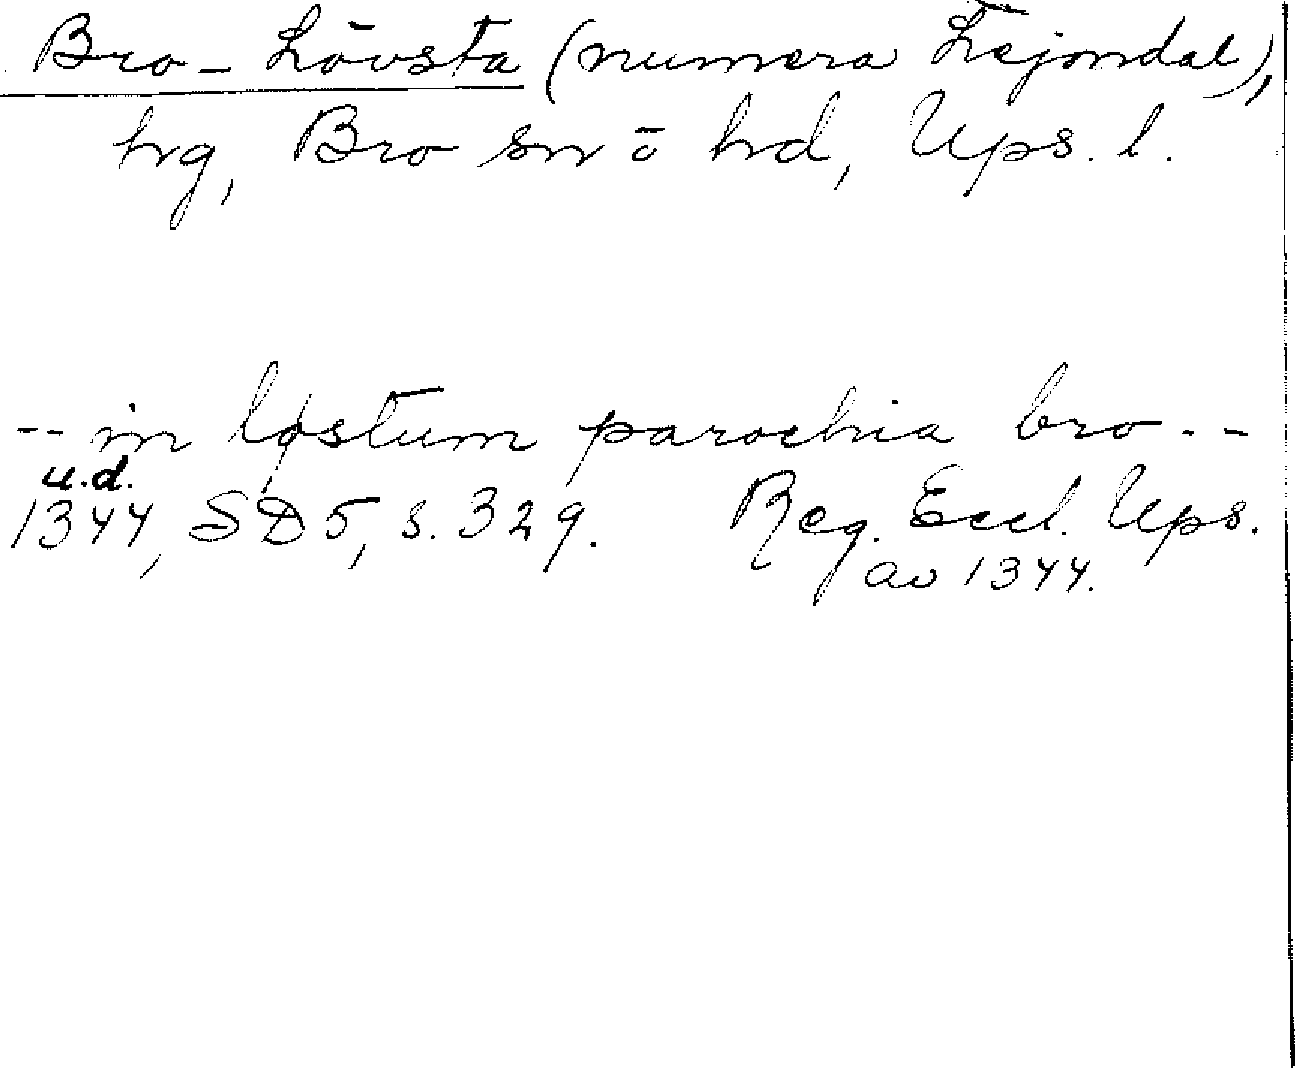 Bro-Lövsta (numera Lejondal),
hg, Bro sn o hd, Ups. l.
-- in løstum parochia bro --
u.d.
1344, SD 5, s. 329. Reg. Eccl. Ups.
av 1344.